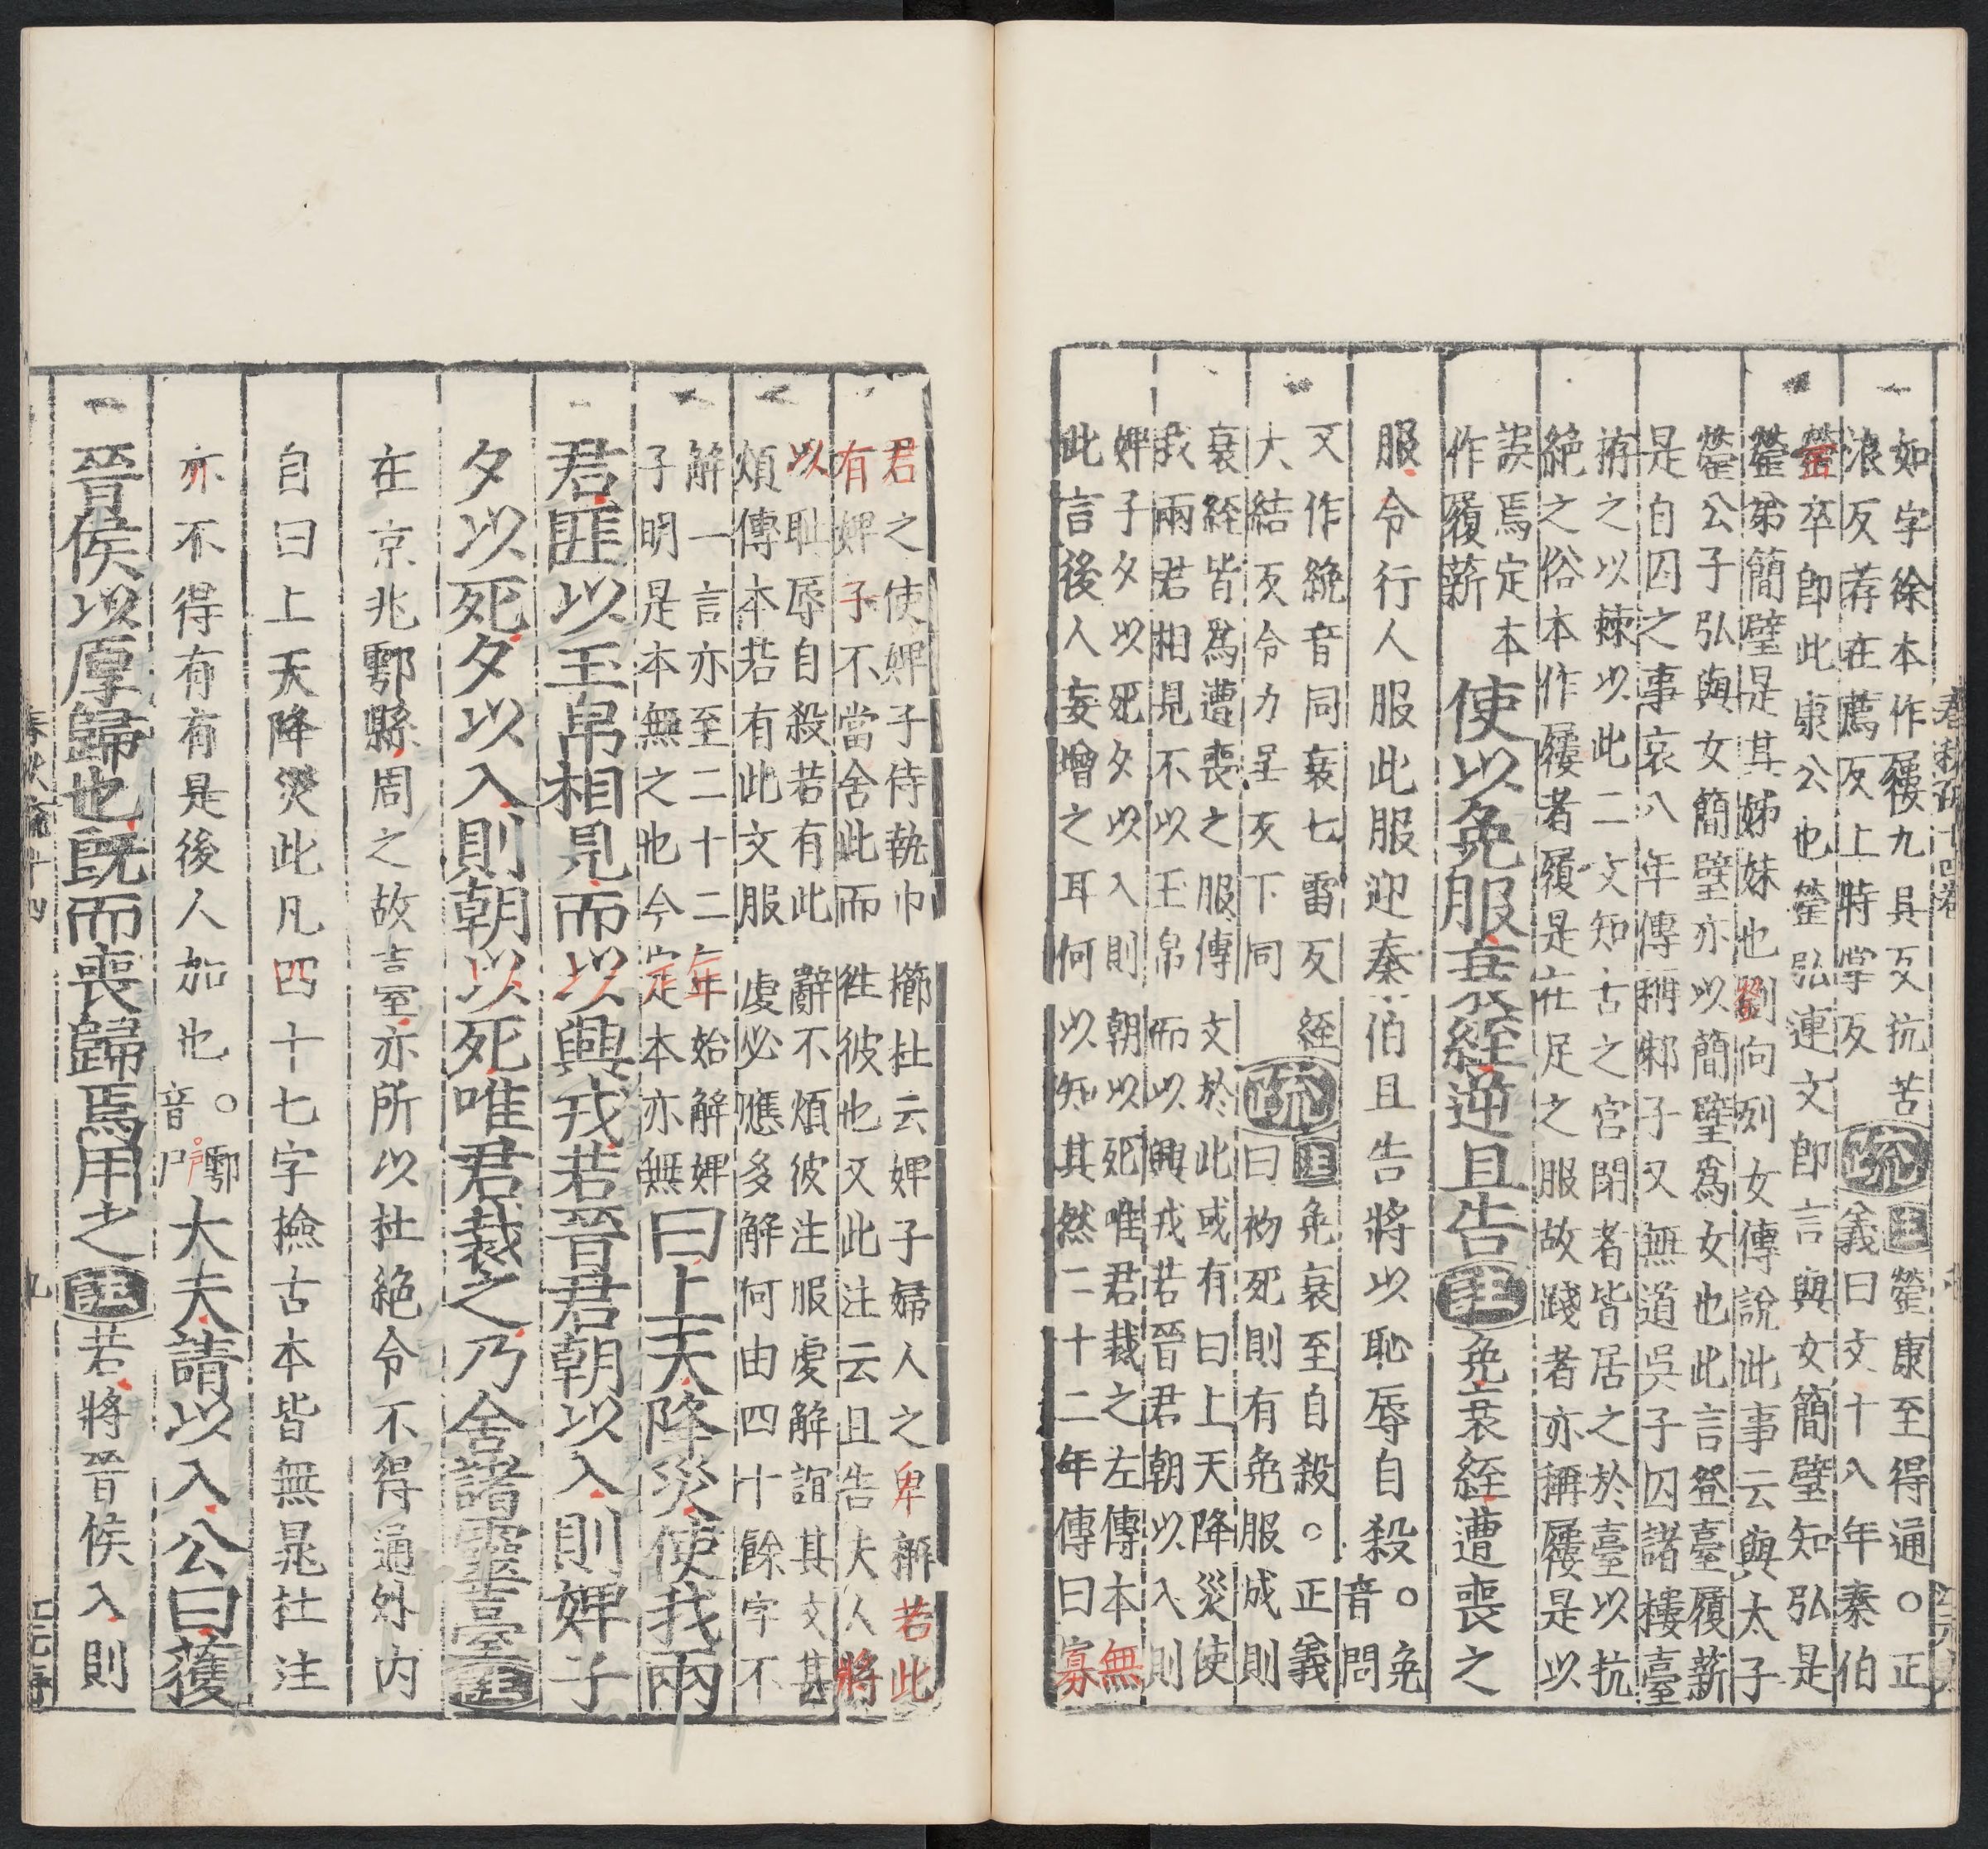 如字徐本作屨九具反抗苦
浪反荐在薦反上時掌反
疏
注罃康至得通○正
義曰文十八年秦伯
罃卒即此康公也罃弘連文即言與女簡璧知弘是
罃弟簡璧是其姊妹也劉向列女傳說此事云與太子
罃公子弘與女簡璧亦以簡璧爲女也此言登臺履薪
是自囚之事哀八年傳稱邾子又無道吳子囚諸樓臺
栫之以棘以此二文知古之宮閉者皆居之於臺以抗
絕之俗本作屨者履是在足之服故踐者亦稱屨是以
誤焉定本
作履薪
使以免服衰絰逆且告注免衰絰遭喪之
服令行人服此服迎秦伯且告將以恥辱自殺○免
音問
又作絻音同衰七雷反絰
大結反令力呈反下同
疏
注免衰至自殺○正義
曰初死則有免服成則
衰絰皆爲遭喪之服傳文於此或有曰上天降災使
我兩君相見不以玉帛而以興戎若晉君朝以入則
婢子夕以死夕以入則朝以死唯君裁之左傳本無
此言後人妄增之耳何以知其然二十二年傳曰寡
君之使婢子侍執巾櫛杜云婢子婦人之卑稱若此
有婢子不當舍此而往彼也又此注云且告夫人將
以恥辱自殺若有此辭不煩彼注服虔解誼其文甚
煩傳本若有此文服虔必應多解何由四十餘字不
解一言亦至二十二年始解婢
子明是本無之也今定本亦無
曰上天降災使我兩
君匪以玉帛相見而以興戎若晉君朝以入則婢子
夕以死夕以入則朝以死唯君裁之乃舍諸靈臺注
在京兆鄠縣周之故臺亦所以杜絕令不得通外內
自曰上天降災此凡四十七字撿古本皆無尋杜注
亦不得有有是後人加也○鄠
音戶
大夫請以入公曰獲
晉侯以厚歸也既而喪歸焉用之注若將晉侯入則